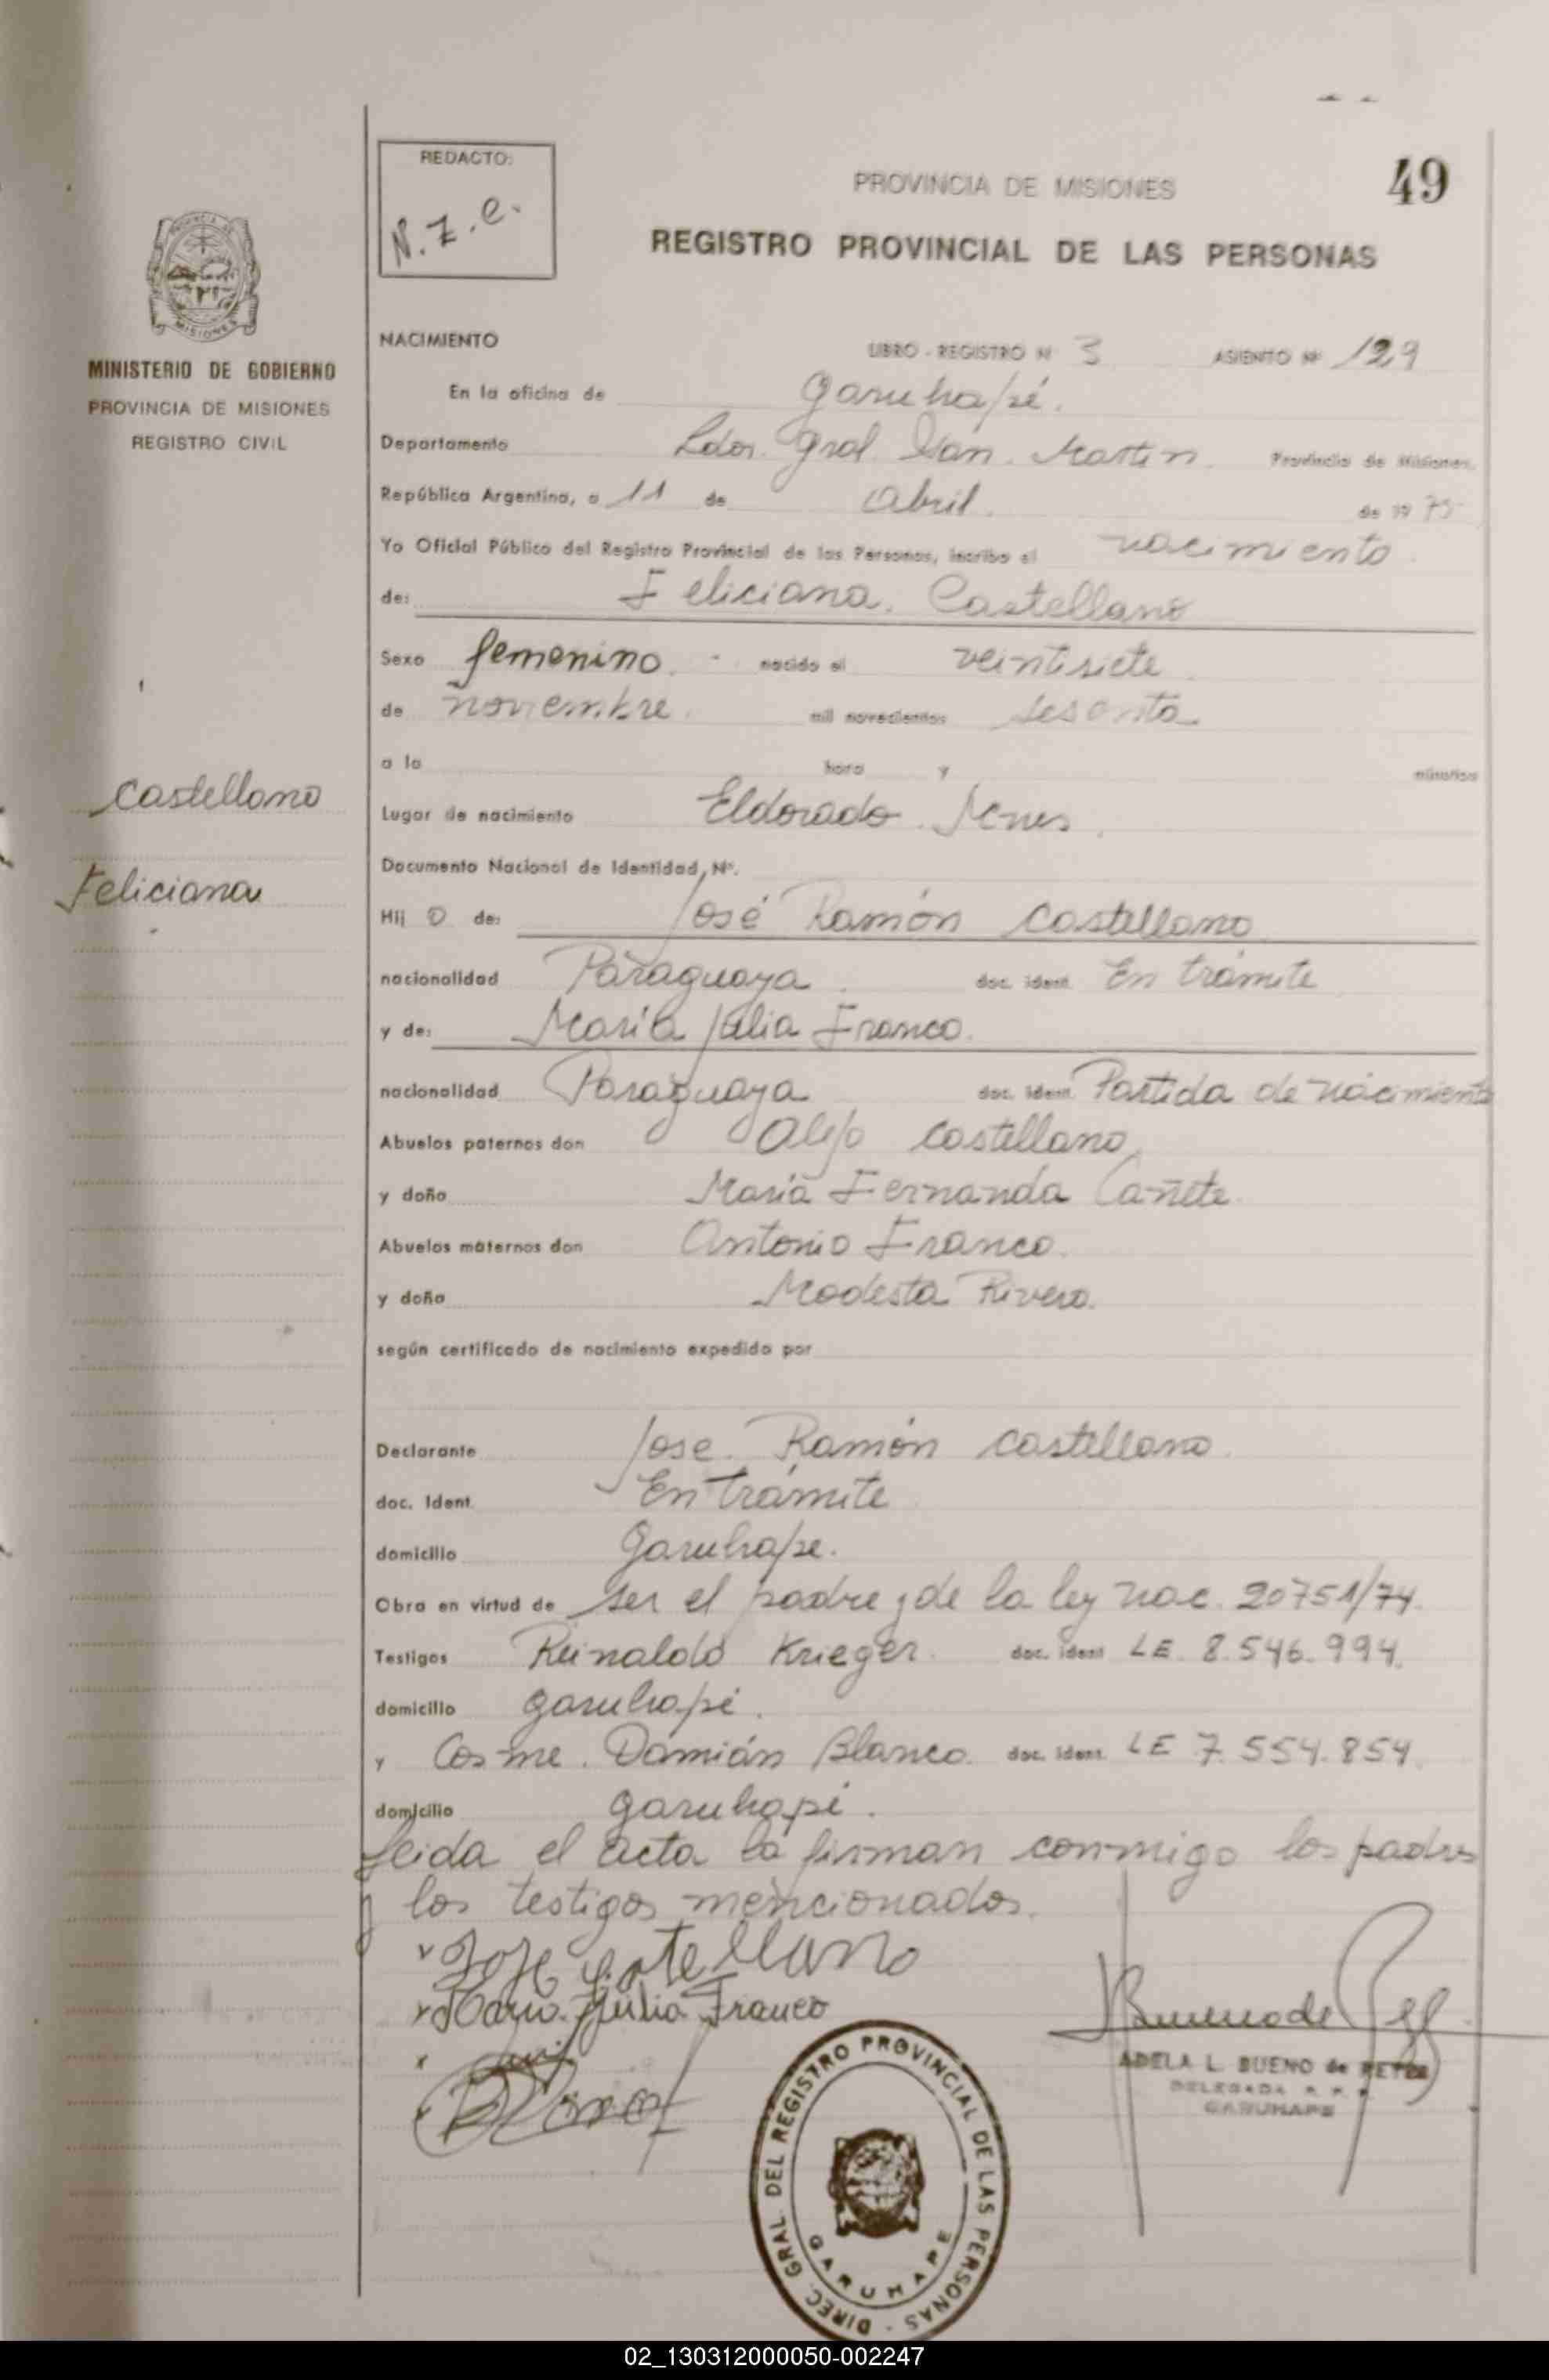 49
REDACTO:
N.Z.C.
PROVINCIA DE MISIONES
REGISTRO PROVINCIAL DE LAS PERSONAS
PROVINCIA DE
MISIONES
MINISTERIO DE GOBIERNO
PROVINCIA DE MISIONES
REGISTRO CIVIL
Castellano
Feliciana
NACIMIENTO LIBRO - REGISTRO Nº 3 ASIENTO Nº 129
En la oficina de Garuhapé.
Departamento Ldor. Gral. San. Martin. Provincia de Misiones,
República Argentina, a 11 de Abril. de 19 75
Yo Oficial Público del Registro Provincial de las Personas, inscribo el nacimiento.
de: Feliciana. Castellano
Sexo femenino. - nacido el veintisiete
de noviembre. mil novecientos sesenta
a la hora y minutos
Lugar de nacimiento Eldorado
Documento Nacional de Identidad, Nº.
Hij o de: José Ramón Castellano
nacionalidad Paraguaya. doc. ident. En trámite
y de: María Julia Franco.
nacionalidad Paraguaya doc. ident. Partida de nacimiento
Abuelos paternos don Alejo Castellano
y doña María Fernanda Cañete.
Abuelos maternos don Antonio Franco.
y doña Modesta Rivero.
según certificado de nacimiento expedido por
Declarante Jose. Ramón Castellano.
doc. Ident. En trámite
domicilio Garuhape.
Obra en virtud de ser el padre y de la ley nac. 20751/74.
Testigos Reinaldo Krieger. doc. ident LE. 8.546.994.
domicilio Garuhapé.
y Cosme. Damián Blanco. doc. ident. LE 7.554.854.
domicilio Garuhapé.
Leida el acta la firman conmigo los padres
y los testigos mencionados.
Jose Castellano
Maria. Julia Franco
Blanco
Bueno de
ADELA L. BUENO de REYES
DELEGADA R. P. P.
GARUHAPE
DIREC. GRAL. DEL REGISTRO PROVINCIAL DE LAS PERSONAS -
GARUHAPE
02_130312000050-002247